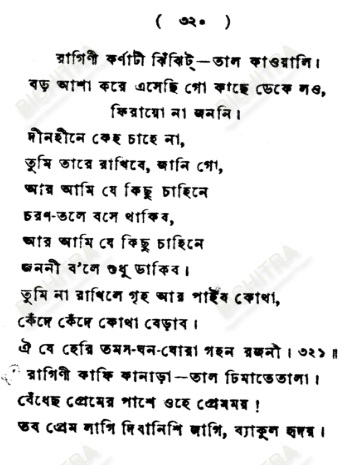 ( ৩২০ )
রাগিণী কর্ণাটী ঝিঁঝিট্—তাল কাওয়ালি।
বড় আশা করে এসেছি গো কাছে ডেকে লও,
ফিরায়ো না জননি।
দীনহীনে কেহ চাহে না,
তুমি তারে রাখিবে, জানি গো,
আর আমি যে কিছু চাহিনে
চরণ-তলে বসে থাকিব,
আর আমি যে কিছু চাহিনে
জননী ব'লে শুধু ডাকিব।
তুমি না রাখিলে গৃহ আর পাইব কোথা,
কেঁদে কেঁদে কোথা বেড়াব।
ঐ যে হেরি তমস-ঘন-ঘোরা গহন রজনী। ৩২১॥
রাগিণী কাফি কানাড়া—তাল ঢিমাতেতালা।
বেঁধেছ প্রেমের পাশে ওহে প্রেমময়!
তব প্রেম লাগি দিবানিশি জাগি, ব্যাকুল হৃদয়।
BICHITRA